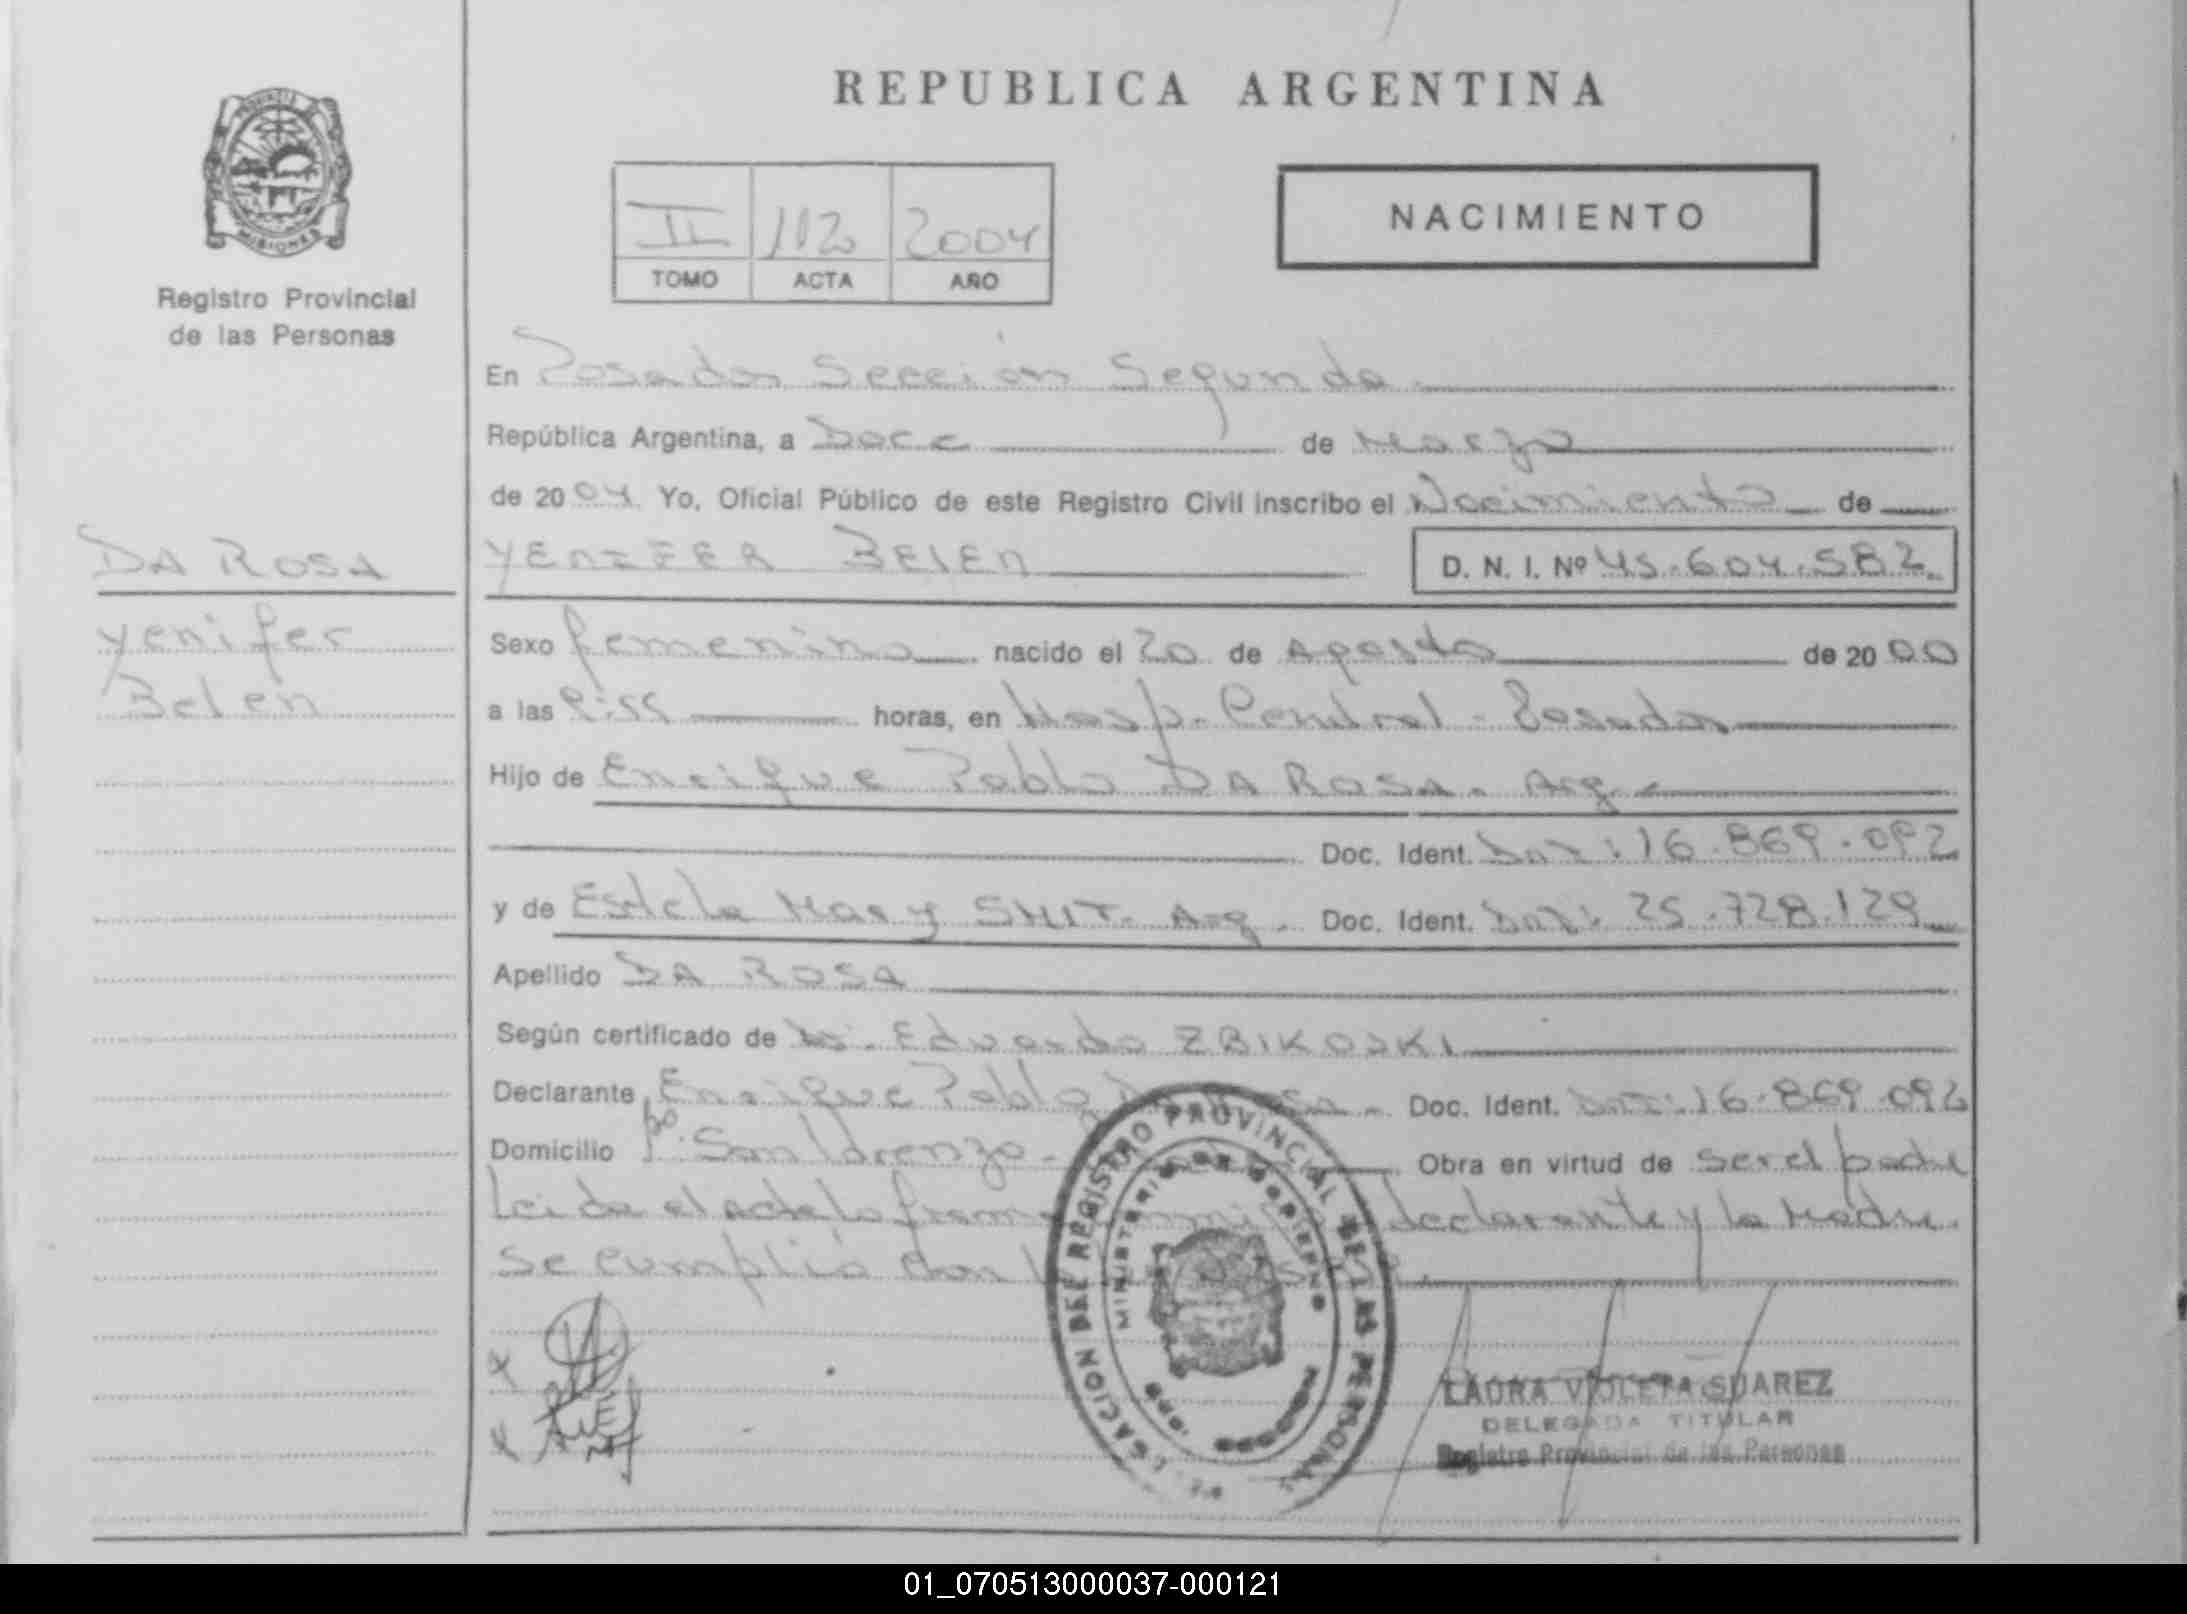 REPUBLICA ARGENTINA
PROVINCIA
MISIONES
Registro Provincial
de las Personas
II 112 2004
TOMO ACTA AÑO
NACIMIENTO
En Posadas Sección Segunda
República Argentina, a Doce de Marzo
de 2004 Yo, Oficial Público de este Registro Civil inscribo el Nacimiento de
DA ROSA
Yenifer
Belen
YENIFER BELEN D. N. I. Nº 45.604.582
Sexo femenino nacido el 20 de Agosto de 2000
a las horas, en Hosp. Central - Posadas
Hijo de Enrique Pablo DA ROSA. Arg.
Doc. Ident. DNI: 16.869.092
y de Estela Mary SMIT. Arg. Doc. Ident. DNI: 25.728.129
Apellido DA ROSA
Según certificado de Dr. Eduardo ZBIKOSKI
Declarante Enrique Pablo Da Rosa. Doc. Ident. DNI: 16.869.092
Domicilio Bº San Lorenzo. Obra en virtud de ser el padre
Leida el acta la firma declarante y la Madre.
Se cumplió con
DELEGACION DEL REGISTRO PROVINCIAL DE LAS PERSONAS
MINISTERIO DE GOBIERNO
LAURA VIOLETA SUAREZ
DELEGADA TITULAR
Registro Provincial de las Personas
01_070513000037-000121